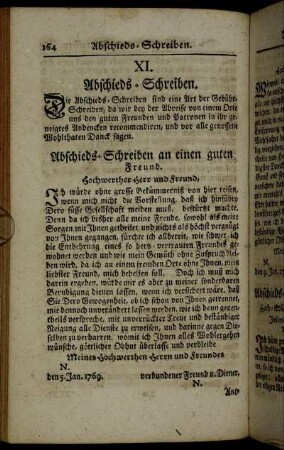 164 Abschieds-Schreiben.
XI.
Abschieds-Schreiben.
Die Abschieds-Schreiben sind eine Art der Gebühr-
Schreiben, da wir bey der Abreise von einem Orte
uns den guten Freunden und Patronen in ihr ge-
neigtes Andencken recommendiren, und vor alle genossene
Wohlthaten Danck sagen.
Abschieds-Schreiben an einen guten
Freund.
Hochwerther Herr und Freund,
Ich würde ohne grosse Bekümmerniß von hier reisen,
wenn mich nicht die Vorstellung, daß ich hinführo
Dero süsse Gesellschaft meiden muß, bestürzt machte.
Denn da ich bisher alle meine Freude, sowohl als meine
Sorgen mit Ihnen getheilet, und nichts als höchst vergnügt
von Ihnen gegangen, fürchte ich allbereit, wie schwer ich
die Entbehrung eines so hertz-vertrauten Freundes ge-
wohnet werden und wie mein Gemüth ohne Zuspruch blei-
ben wird, da ich an einem fremden Orte ohne Ihnen, mein
liebster Freund, mich behelfen soll. Doch ich muß mich
darein ergeben, würde mir es aber zu meiner sonderbaren
Beruhigung dienen lassen, wenn ich versichert wäre, daß
Sie Dero Gewogenheit, ob ich schon von Ihnen getrennet,
mir dennoch unverändert lassen werden, wie ich denn gegen-
theils verspreche, mit unverrückter Treue und beständiger
Neigung alle Dienste zu erweisen, und darinne gegen Die-
selben zu verharren, womit ich Ihnen alles Wohlergehen
wünsche, göttlicher Obhut überlasse und verbleibe
Meines Hochwerthen Herrn und Freundes
N.
den 5. Jan. 1769. verbundener Freund u. Diener,
N.
Ant-